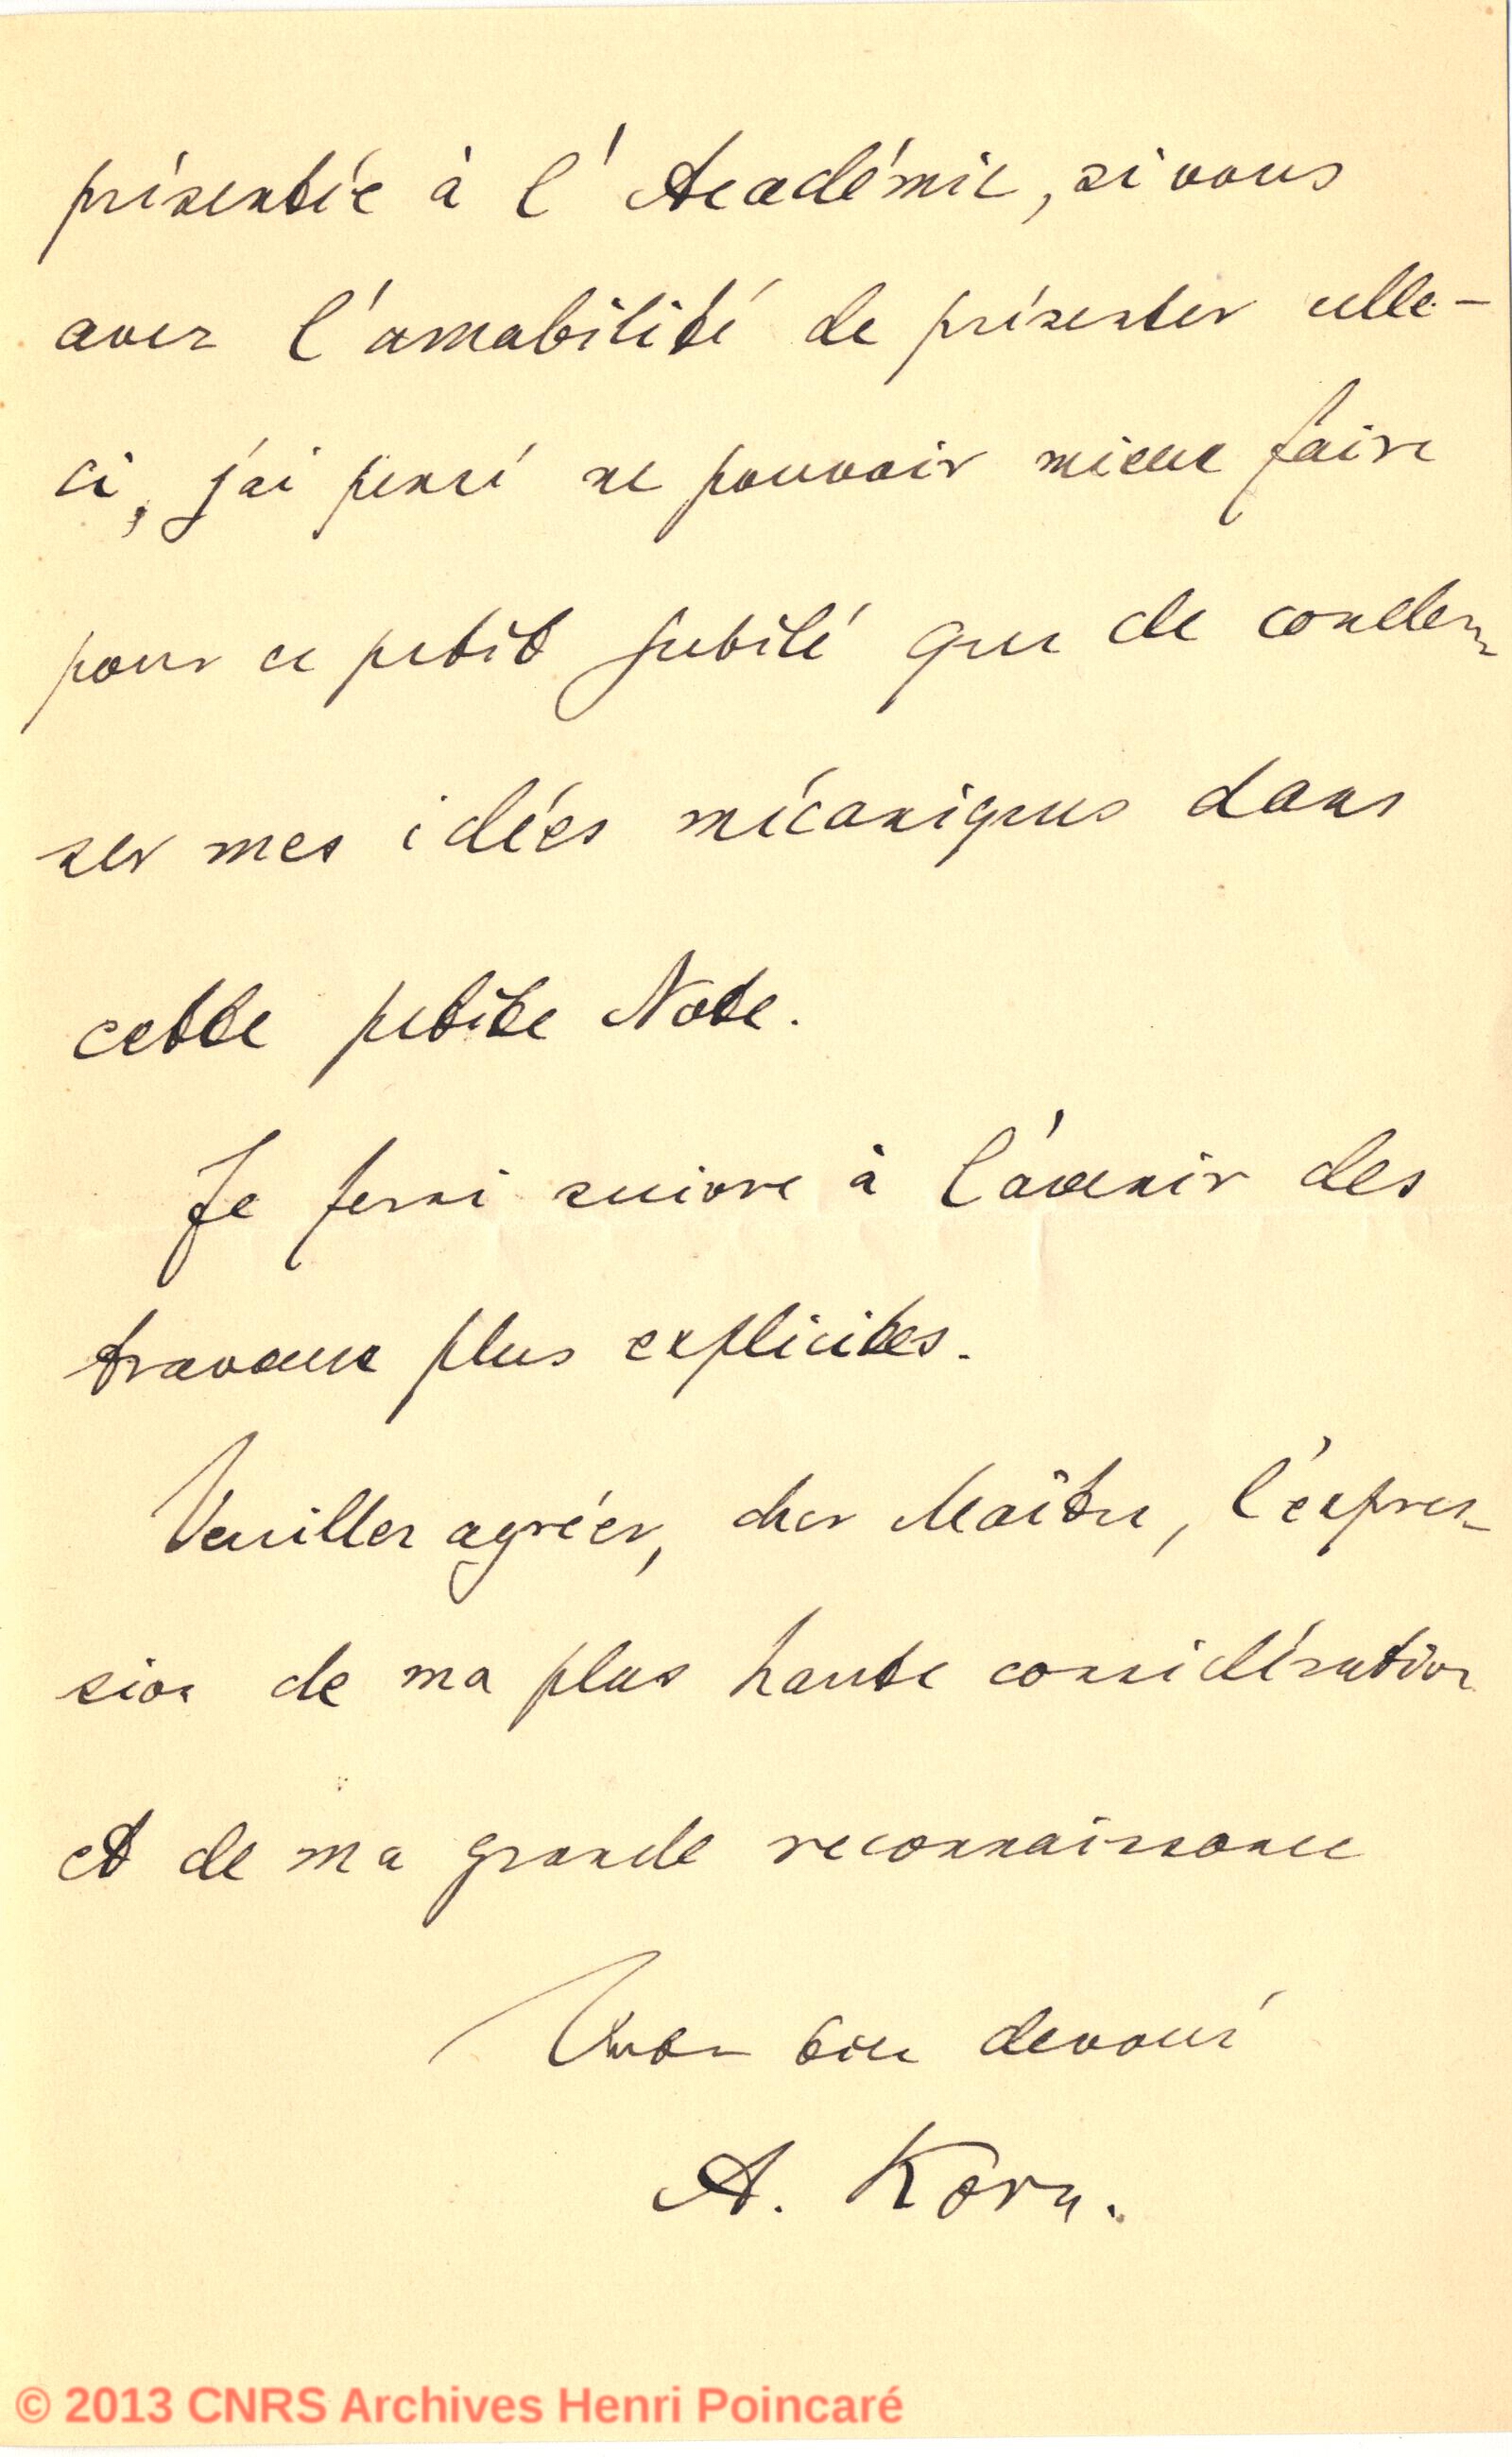 présentée à l'Académie, si vous
avez l'amabilité de présenter celle-
ci, j'ai pensé ne pouvoir mieux faire
pour ce petit Jubilé que de conden-
ser mes idées mécaniques dans
cette petite Note.
Je ferai suivre à l'avenir des
travaux plus explicites.
Veuillez agréer, cher Maître, l'expres-
sion de ma plus haute considération
et de ma grande reconnaissance
Votre bien devoué
A. Korn.
© 2013 CNRS Archives Henri Poincaré